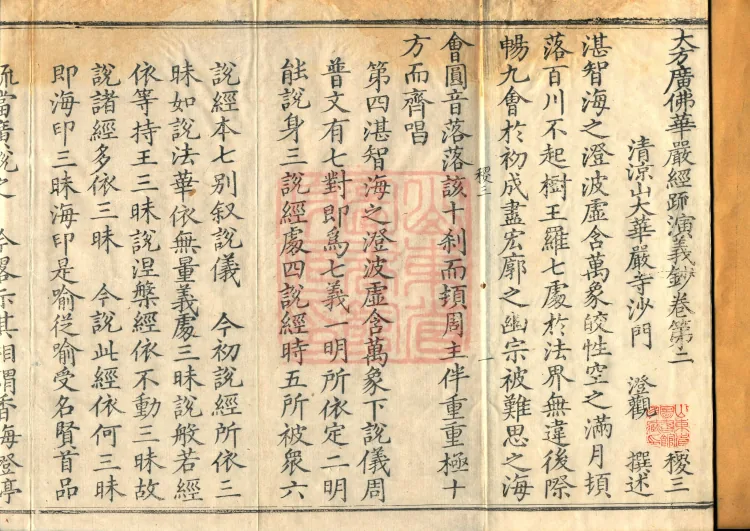 大方廣佛華嚴經䟽演義鈔卷第二　稷三
清涼山大華嚴寺沙門　澄觀　撰述
湛智海之澄波虛含萬象皎性空之滿月頓
落百川不起樹王羅七處於法界無違後際
暢九會於初成盡宏廓之幽宗被難思之海
稷三　一
會圓音落落該十剎而頓周主伴重重極十
方而齊唱
第四湛智海之澄波虛含萬象下說儀周
普文有七對即為七義一明所依定二明
能說身三說經處四說經時五所被衆六
說經本七別叙說儀　今初說經所依三
昧如說法華依無量義處三昧說般若經
依等持王三昧說涅槃經依不動三昧故
說諸經多依三昧　今說此經依何三昧
即海印三昧海印是喻從喻受名賢首品
疏當廣說之　今畧示其相謂香海澄渟